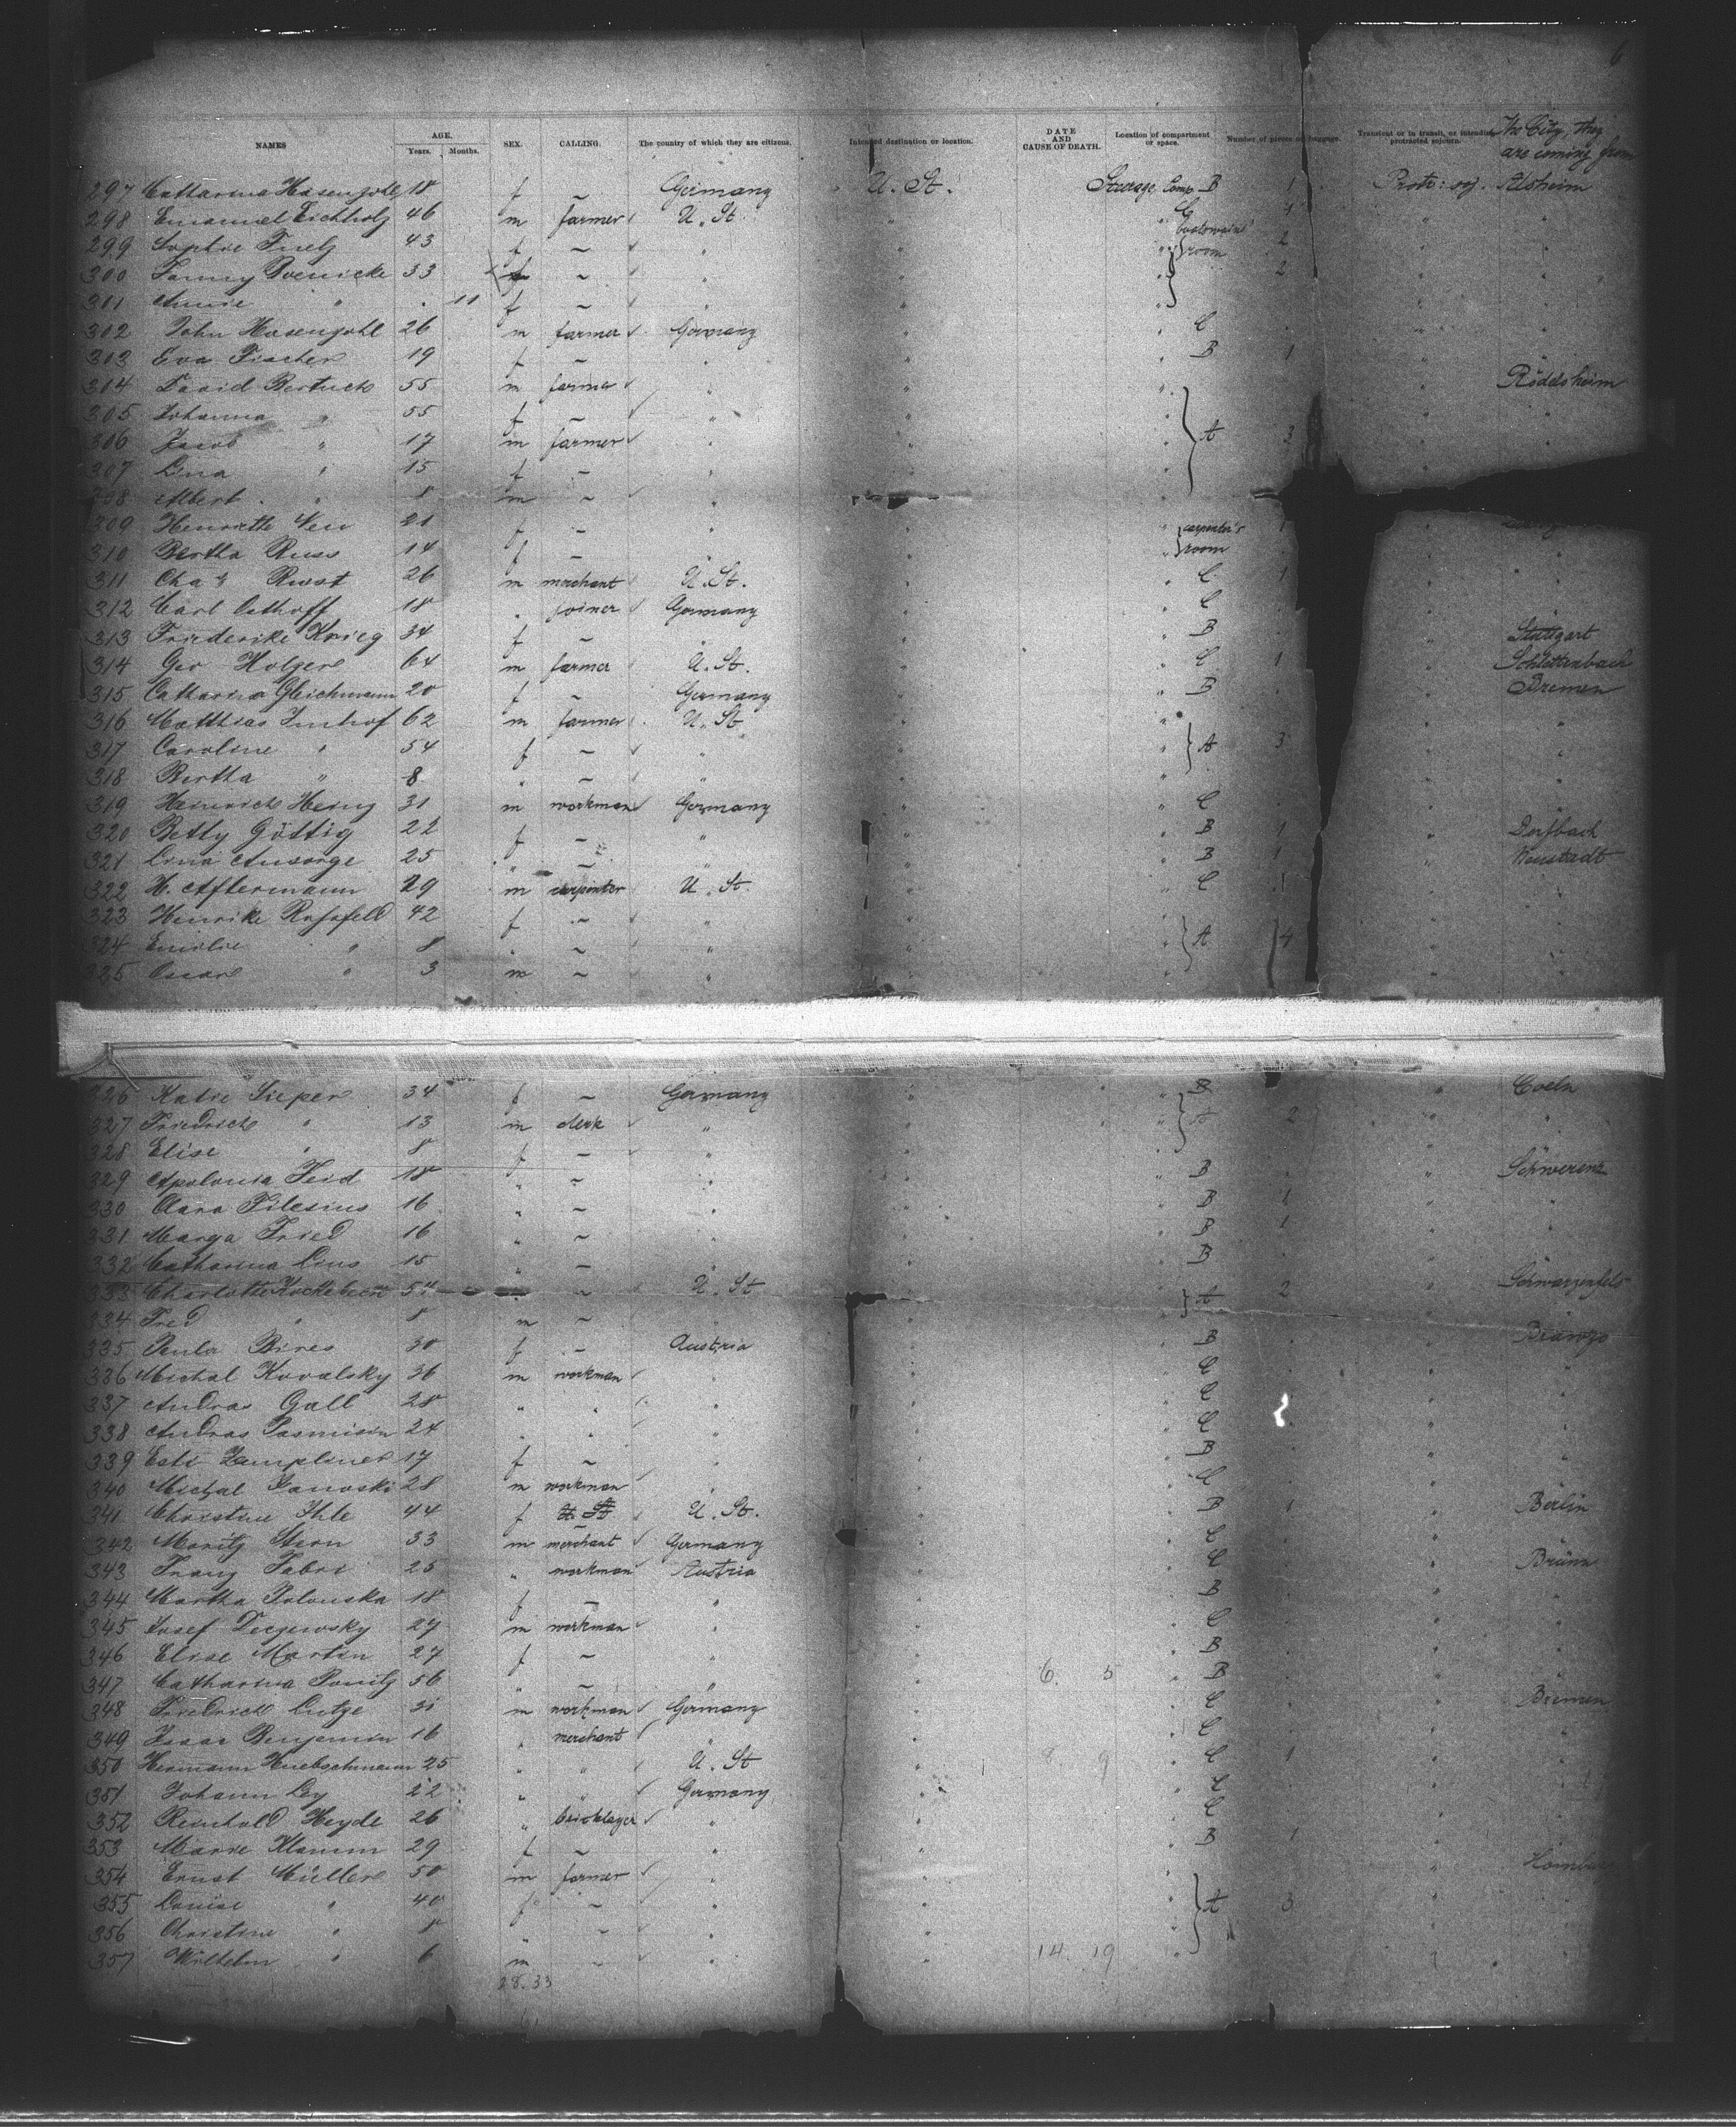 6
NAMES AGE. Years. Months. SEX. CALLING. The country of which they are citizens. Intended destination or location. DATE AND CAUSE OF DEATH. Location of compartment or space. Number of pieces of baggage. Transient or in transit, or intending protracted sojourn. The City, they are coming from
297 Catharina Hasengohl 18 f ~ Germany U. St. Steerage Comp. B 1 Protr: soj. Alsheim
298 Emanuel Eichholz 46 m farmer U. St. " C 1 " "
299 Sophie 43 f ~ " " " boatswain's room 2 " "
300 Fanny Boenicke 33 f ~ " " " 2 " "
301 Annie " 11 f ~ " " " " "
302 John Hasengohl 26 m farmer Germany " " C " "
303 Eva Fischer 19 f ~ " " " B 1 " "
304 David Bertuch 55 m farmer " " " " Rödelsheim
305 Johanna " 55 f ~ " " " " "
306 Jacob " 17 m farmer " " " A 3 " "
307 Lina " 15 f ~ " " " "
308 Albert " 8 m ~ " " "
309 Henriette 21 f ~ " " " carpenter's room 1
310 Bertha Russ 14 f ~ " " " " "
311 Cha's Rust 26 m merchant U. St. " " C 1 " "
312 Carl Osthoff 18 " joiner Germany " " C " "
313 Friederike Krieg 34 f ~ " " " B " Stuttgart
314 Geo Holzer 64 m farmer U. St. " " C 1 " Schlettenbach
315 Catharina Gleichmann 20 f ~ Germany " " B " Bremen
316 Matthias Imhof 62 m farmer U. St. " " " "
317 Caroline " 54 f ~ " " " A 3 " "
318 Bertha " 8 " ~ " " " " "
319 Heinrich Heing 31 m workman Germany " " C " "
320 Betty Göttig 22 f ~ " " " B 1 " Dorfbach
321 Lina Ansorge 25 " ~ " " " B 1 " Neustadt
322 H. Aftermann 29 m carpenter U. St. " " C 1 " "
323 Henrike Rossfeld 42 f ~ " " " " "
324 Emilie " 8 " ~ " " " A 4 " "
325 Oscar " 3 m ~ " " " " "
326 Katie Sieper 34 f ~ Germany " " B " Coeln
327 Friedrich " 13 m clerk " " " A 2 " "
328 Elise " 8 f ~ " " " " "
329 Apolonia Feid 18 " ~ " " " B " Schwerenz
330 Clara Filesius 16 " ~ " " " B 1 " "
331 Marga Fried 16 " ~ " " " B 1 " "
332 Catharina Lins 15 " ~ " " " B " "
333 Charlotte 54 " ~ U. St. " " A 2 " Schwarzenfels
334 Fred " 8 m ~ " " " "
335 Paula Bires 30 f ~ Austria " " B "
336 Michal Kovalsky 36 m workman " " " C " "
337 Andras Gall 28 " " " " " C " "
338 Andras 24 " " " " " C " "
339 Esti Zampliner 17 f ~ " " " B " "
340 Michal Janoski 28 m workman " " " C " "
341 Christine Ihle 44 f U. St. U. St. " " B 1 " Berlin
342 Moritz Stern 33 m merchant Germany " " C " "
343 Franz Fabri 25 " workman Austria " " C " Brünn
344 Martha Polonska 18 f ~ " " " B " "
345 Josef 27 m workman " " " C " "
346 Elise Martin 27 f ~ " " " B " "
347 Catharina 56 " ~ " " 6. 5 " B " "
348 Friedrich Lutze 31 m workman Germany " " C " Bremen
349 Isaac Benjamin 16 " merchant " " " C " "
350 Hermann Huebschmann 25 " " U. St. " 8 9 " C 1 " "
351 Johann Ley 22 " " Germany " " C " "
352 Reinhold Heyde 26 " bricklayer " " " C " "
353 Marie Klamm 29 f ~ " " " B 1 " "
354 Ernst Müller 50 m farmer " " " "
355 Louise " 40 f ~ " " " A 3 " "
356 Christine " 8 " ~ " " " " "
357 Wilhelm " 6 m ~ " " 14. 19 " " "
28. 33
61